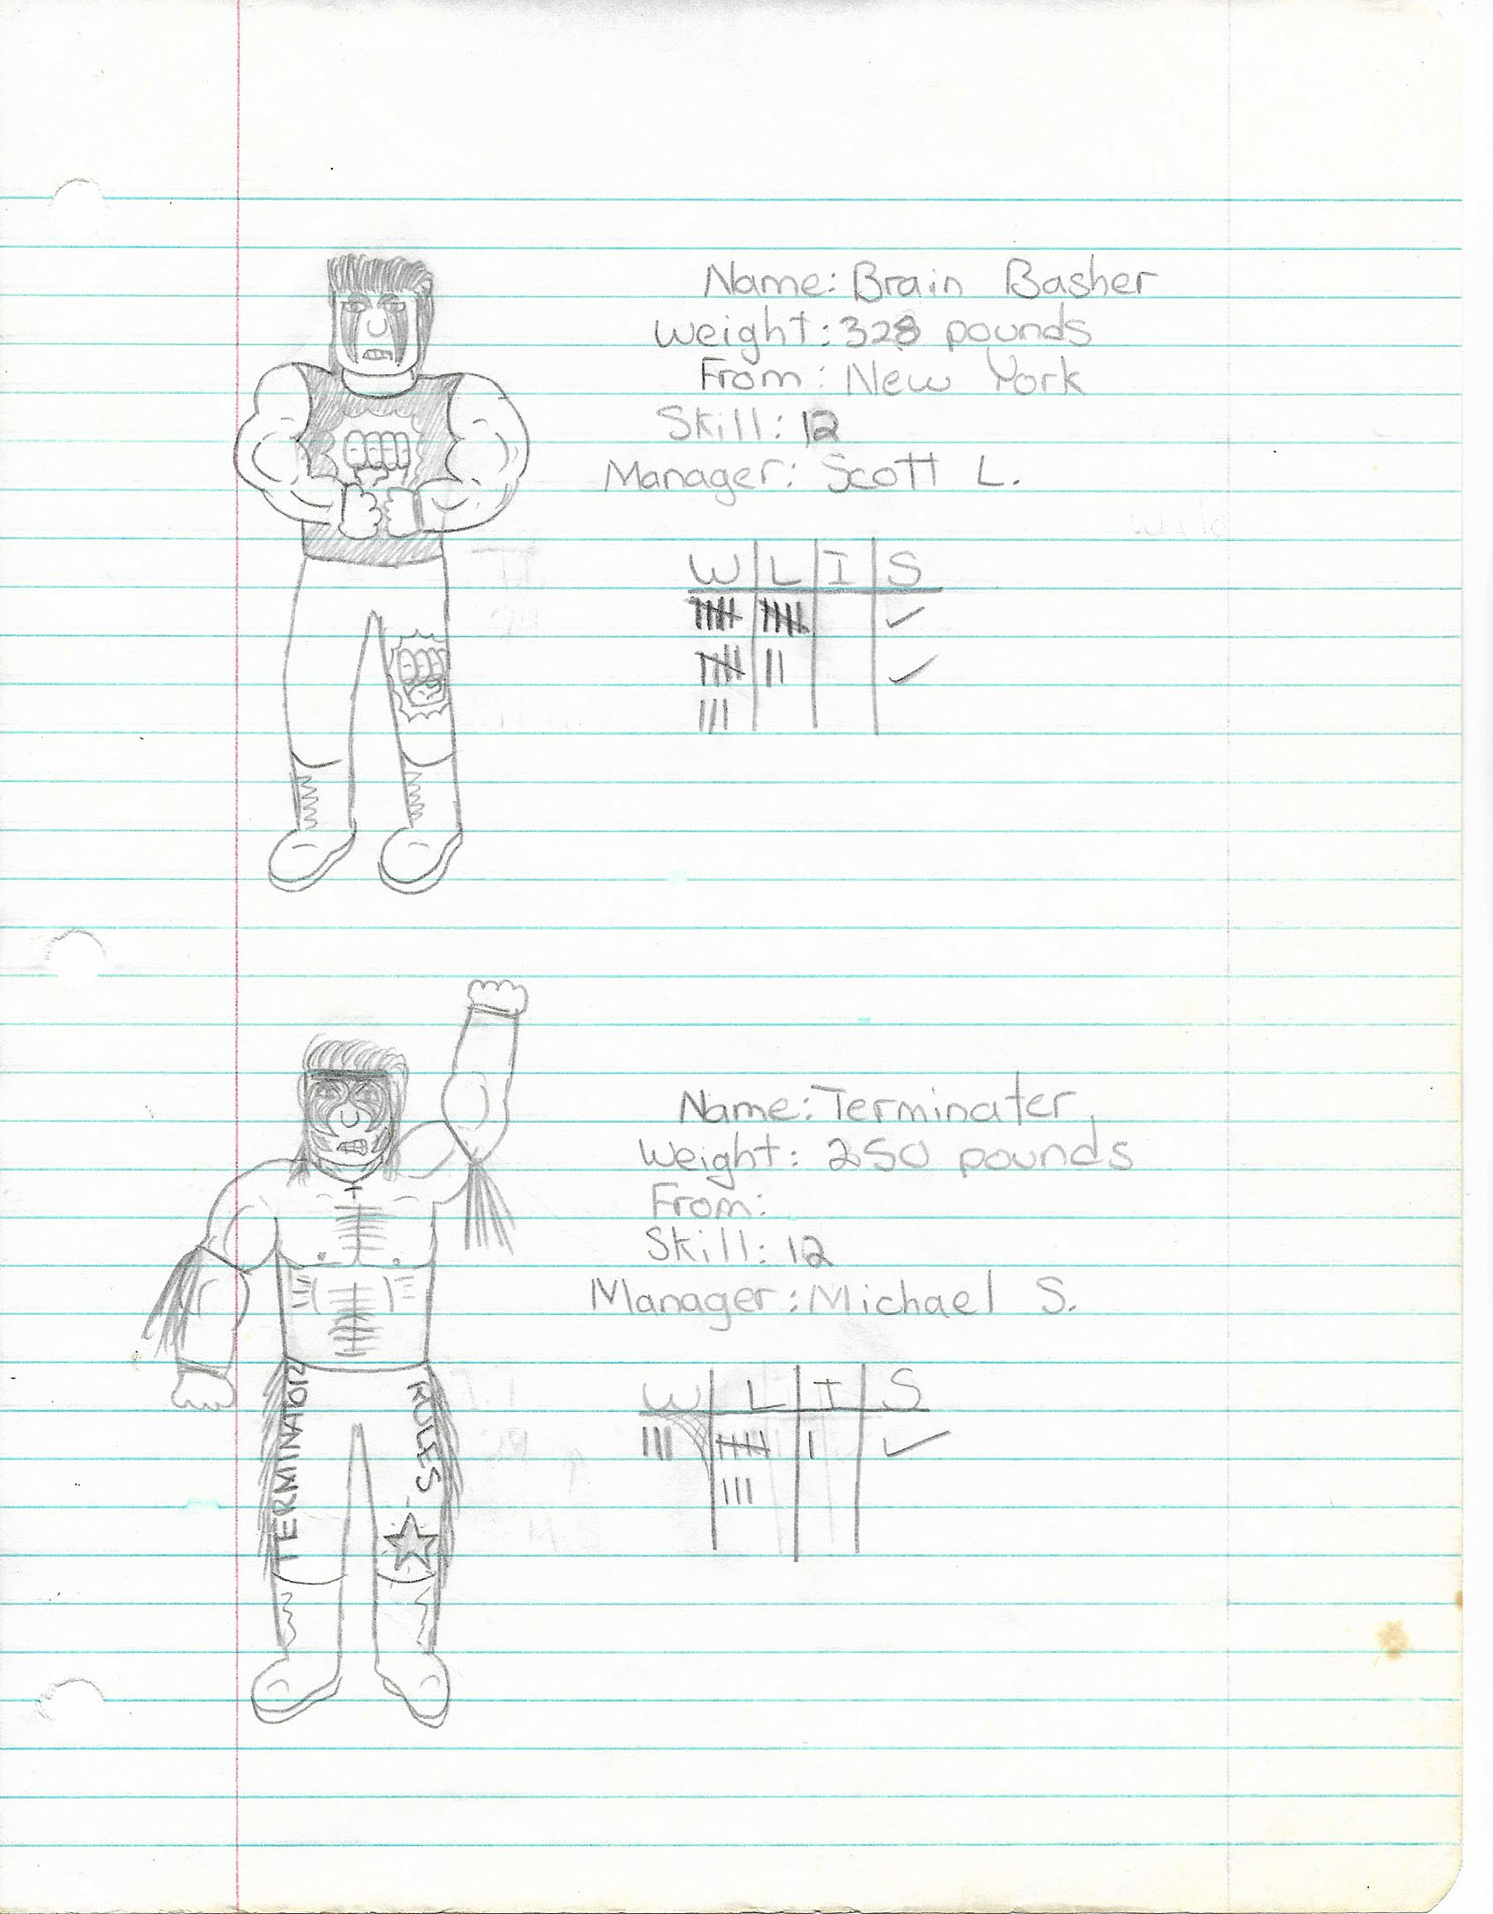 Name: Brain Basher
Weight: 328 pounds
From: New York
Skill: 12
Manager: Scott L.
W L I S
Name: Terminater
Weight: 250 pounds
From:
Skill: 12
Manager: Michael S.
W L I S
TERMINATOR
RULES